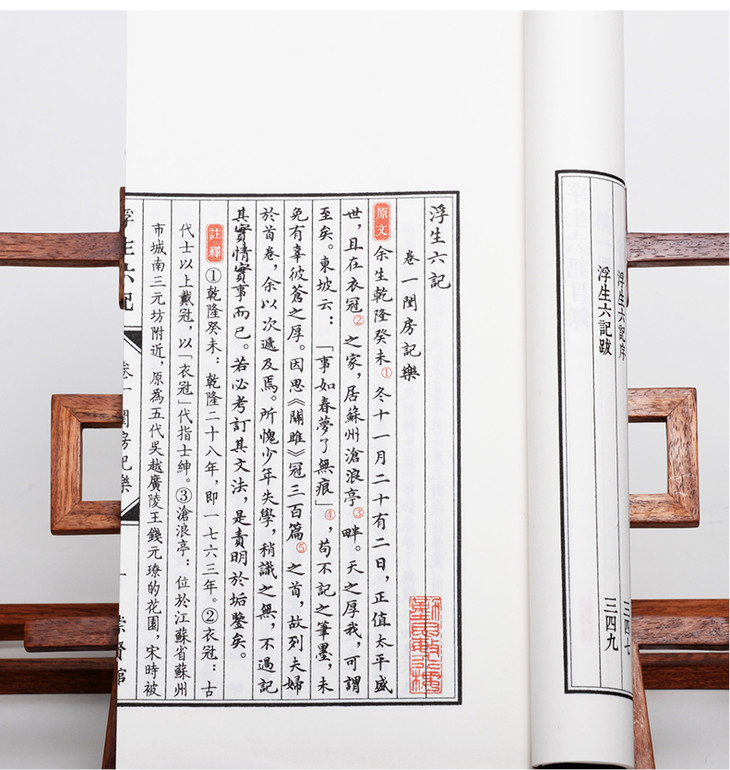 浮生六記序
三四七
浮生六記跋
三四九
浮生六記
卷一閨房記樂
原文 余生乾隆癸未①冬十一月二十有二日，正值太平盛
世，且在衣冠②之家，居蘇州滄浪亭③畔。天之厚我，可謂
至矣。東坡云：「事如春夢了無痕」④，苟不記之筆墨，未
免有辜彼蒼之厚。因思《關雎》冠三百篇⑤之首，故列夫婦
於首卷，余以次遞及焉。所愧少年失學，稍識之無，不過記
其實情實事而已。若必考訂其文法，是責明於垢鑒矣。
註釋 ①乾隆癸未：乾隆二十八年，即一七六三年。②衣冠：古
代士以上戴冠，以「衣冠」代指士紳。③滄浪亭：位於江蘇省蘇州
市城南三元坊附近，原爲五代吳越廣陵王錢元璙的花園，宋時被
浮生六記
卷一
閨房記樂
一
崇賢館